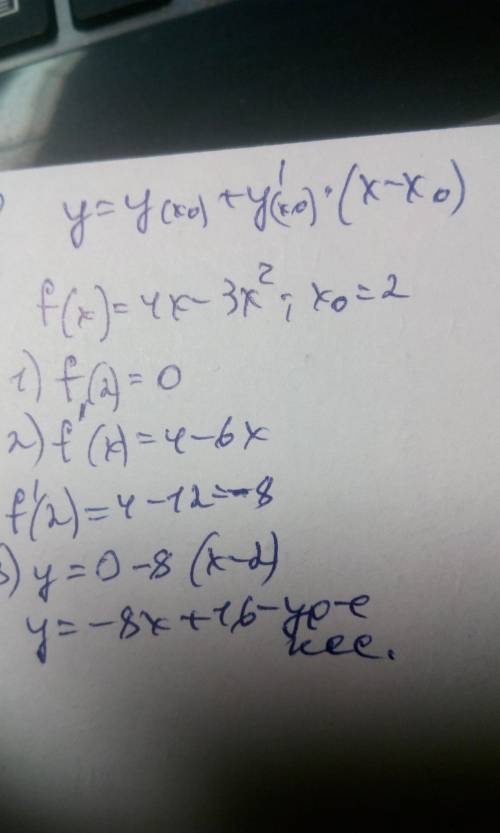 y = y(x₀) + y'(x₀) · (x - x₀)
f(x) = 4x - 3x²; x₀ = 2
1) f(2) = 0
2) f'(x) = 4 - 6x
f'(2) = 4 - 12 = -8
3) y = 0 - 8 (x - 2)
y = -8x + 16 - ур-е
кас.